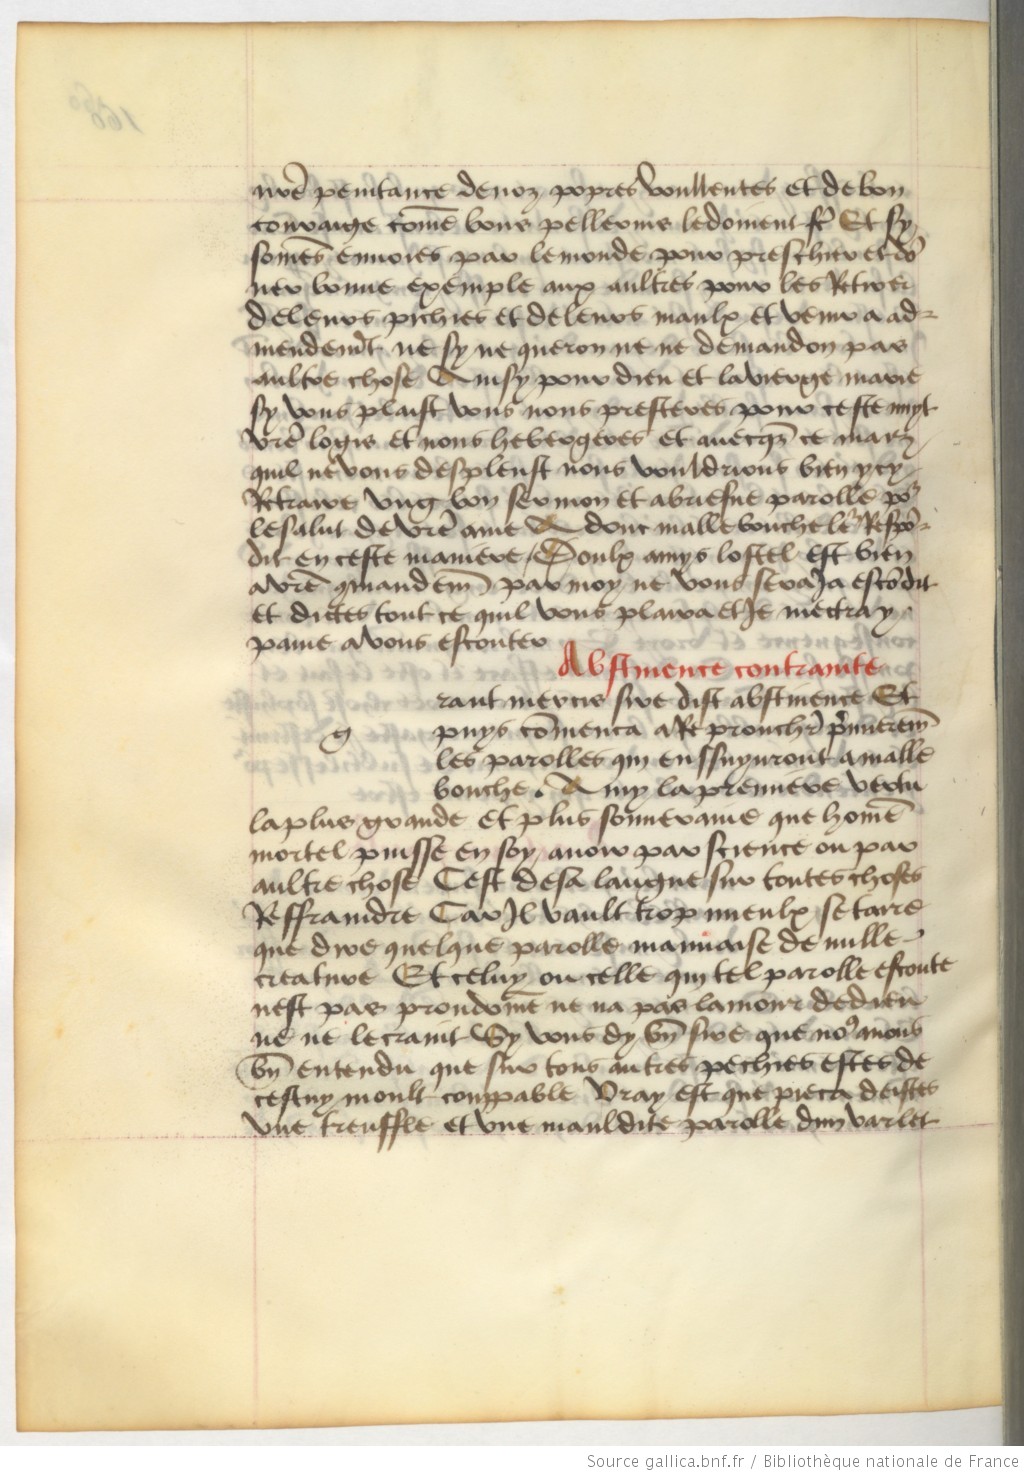 nr̃e penitance de noz popres voullentes et de bon
couraige com̃e bons pellerins le doiuent fr̃ Et sy
som̃es enuoies par le monde pour preschier et dõ
ner bonne exemple aux aultres pour les Retirer
de leurs pichies et de leurs maulx et venir a ad-
mendemẽt ne sy ne queron ne ne demandon pas
aultre chose Ainsy pour dieu et la vierge marie
sy vous plaist vous nous presteres pour ceste nuyt
vr̃e logis et nous heberгeres et auecqz ce mais
quil ne vous despleust nous vouldrions bien ycy
Retraire vng bon sermon et a briefue parolle po᷑
le salut de vr̃e ame A donc malle bouche le᷑ Respõ-
dit en ceste maniere / Doulx amys lostel est bien
a vr̃e ꝯmandem̃ par moy ne vous sera Ja escõdit
et dictes tout ce quil vous plaira et Je mectray
paine a vous escouter
Abstinence contrainte
g
rant mercis sire dist abstinence Et
puys cõmenca a Reprouchr̃ p̃mierem̃
les parolles qui enssuyuront a malle
bouche. Amy la premiere vertu
la plus grande et plus souueraine que hom̃e
mortel puisse en soy auoir par science ou par
aultre chose Cest de sa langue sur toutes choses
Reffraindre Car Jl vault trop mieulx se taire
que dire quelque parolle mauuaise de nulle
creature Et celuy ou celle qui tel parolle escoute
nest pas proudom̃e ne na pas lamour de dieu
ne ne le craint Sy vous dy bñ sire que noꝰ auons
bñ entendu que sur tous autres pechies estes de
cestuy moult coupable Vray est que pieca deistes
vne treuffle et vne mauldite parolle dun varlet
Source gallica.bnf.fr / Bibliothèque nationale de France